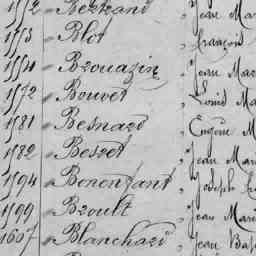 1552 " Bertrand " Jean Mar
1553 " Blot " françois
1554 " Brouazin " Jean Mar
1572 " Bouvet " Louis Ma
1581 " Besnard " Eugène M
1582 " Besret " Jean Mari
1594 " Bonenfant " Joseph
1599 " Broult " Jean Marie
1607 " Blanchard " Jean Bap